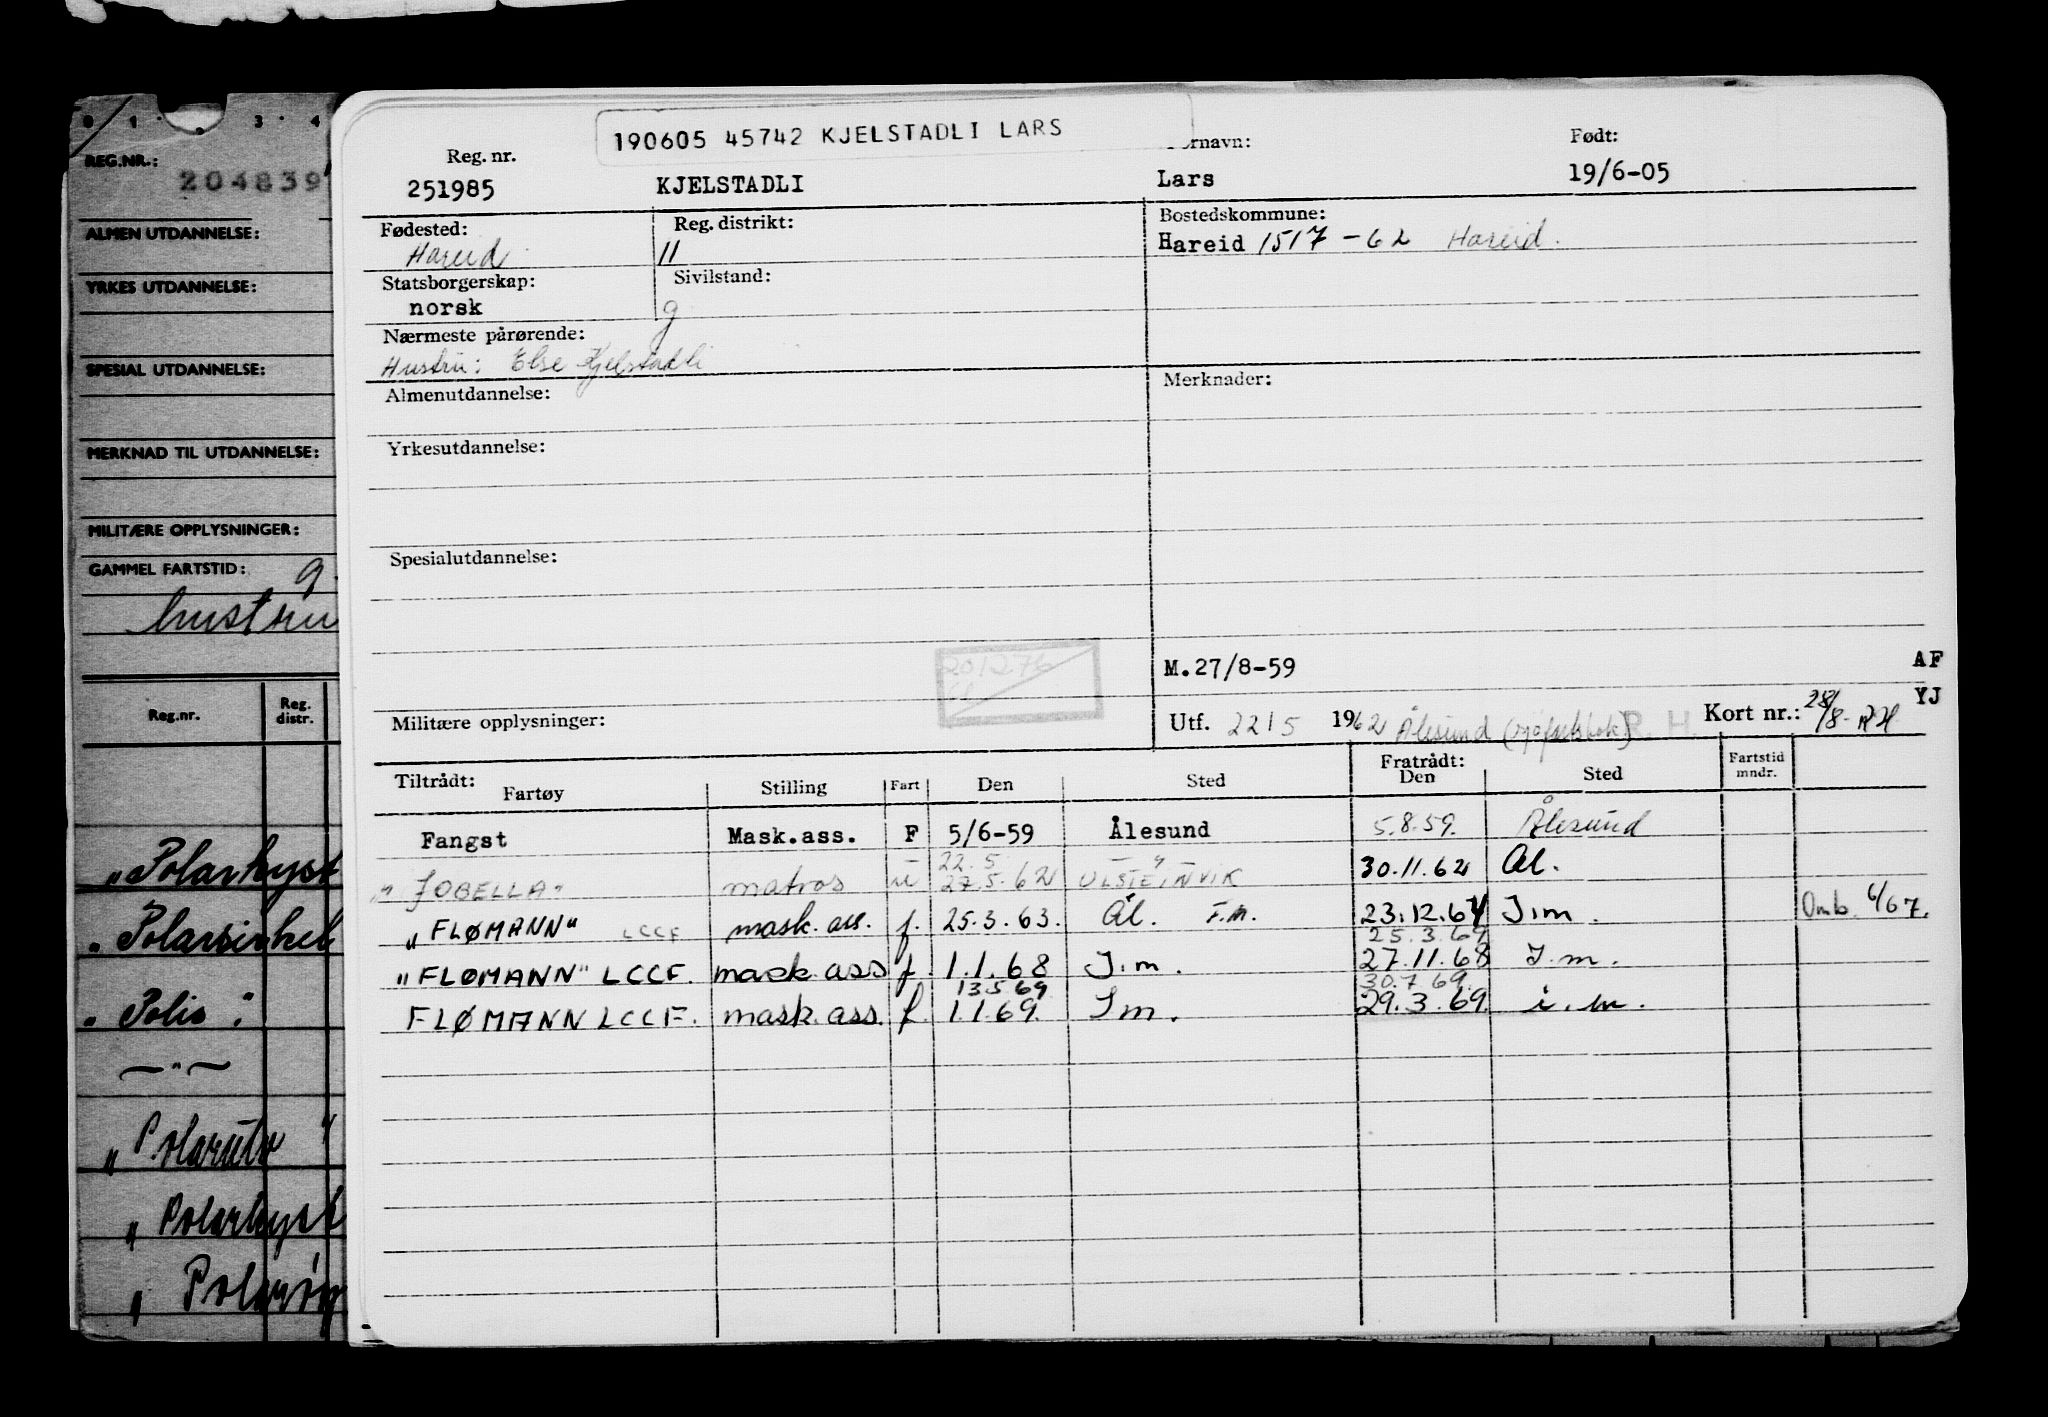 0 1 2 3 4
REG.NR.:
204839
ALMEN UTDANNELSE:
YRKES UTDANNELSE:
SPESIAL UTDANNELSE:
MERKNAD TIL UTDANNELSE:
MILITÆRE OPPLYSNINGER:
GAMMEL FARTSTID: g
hustru
Reg.nr. Reg. distr.
"Polarhyst
"Polarsirkel
"Polis"
— " —
"Polarulv"
"Polarhyst
"Polar
190605 45742 KJELSTADLI LARS
Reg. nr. ornavn: Født:
251985 KJELSTADLI Lars 19/6-05
Fødested: Reg. distrikt: Bostedskommune:
Hareid 11 Hareid 1517 - 62 Hareid.
Statsborgerskap: Sivilstand:
norsk g
Nærmeste pårørende:
Hustru: Else Kjelstadli
Almenutdannelse: Merknader:
Yrkesutdannelse:
Spesialutdannelse:
201276
M.27/8-59 AF
YJ
Militære opplysninger: Utf. 22/5 1962 Ålesund R. H. Kort nr.: 28/8- RH
Tiltrådt: Fartøy Stilling Fart Den Sted Fratrådt: Den Sted Fartstid mndr.
Fangst Mask.ass. F 5/6-59 Ålesund 5.8.59. Ålesund
22.5
"JOBELLA" matros u 27.5.62 ULSTEINVIK 30.11.62 Ål.
"FLØMANN" LCCF mask. ass. f. 25.3.63. Ål. F.m. 23.12.67 I.m. Omb. 6/67.
25.3.69
"FLØMANN" LCCF. mask. ass f. 1.1.68 I.m. 27.11.68 I.m.
13.5.69 30.7.69.
FLØMANN LCCF. mask. ass. f. 1.1.69. I m. 29.3.69. i.m.